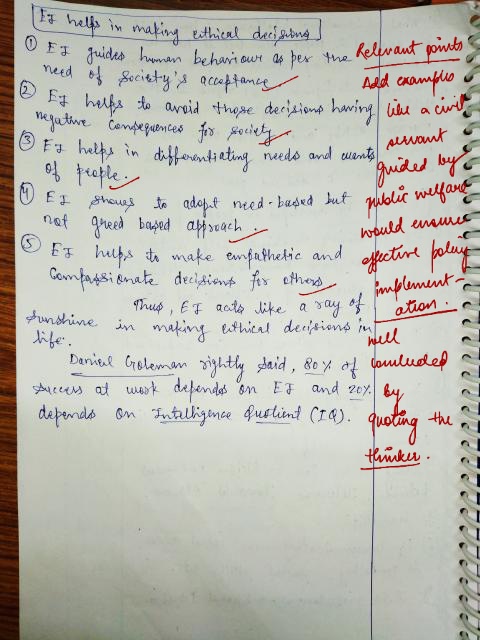 EI helps in making ethical decisions
① EI guides human behaviour as per the
need of society's acceptance
② EI helps to avoid those decisions having
negative consequences for society
③ EI helps in differentiating needs and wants
of people.
④ EI to adopt need-based but
not greed based approach.
⑤ EI helps to make empathetic and
compassionate decisions for others
Thus, EI acts like a ray of
sunshine in making ethical decisions in
life.
Daniel Goleman rightly said, 80% of
success at work depends on EI and 20%
depends on Intelligence Quotient (IQ).
Relevant points
Add examples
like a civil
servant
guided by
public welfare
would ensure
effective policy
implement-
ation.
well
concluded
by
quoting the
thinker.